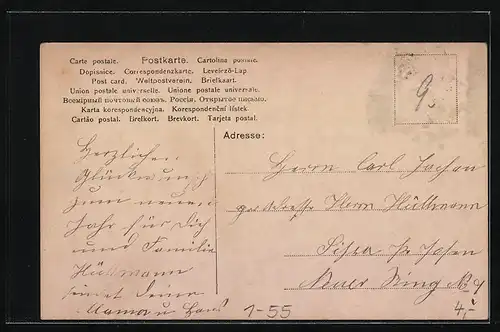 Carte postale. Postkarte. Cartolina postale.
Dopisnice. Correspondenzkarte. Levelező-Lap
Post card. Weltpostverein. Brefkaart.
Union postale universelle. Unione postale universale.
Всемірный почтовый союзъ. Россія. Открытое письмо.
Karta korespondencyjna. Korespondenční lístek.
Cartão postal. Brefkort. Brevkort. Tarjeta postal.
Adresse:
9.
Herzlichen
Glückwunsch
zum neuen
Jahr für Dich
und Familie
Hüllmann
sendet Deine
Mama u
Herrn Carl
Herrn Hüllmann
Neuer
1-55
4,-